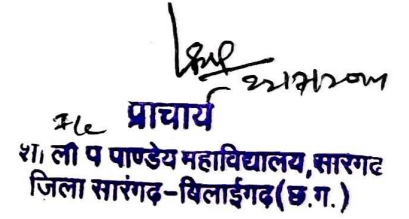 I/c प्राचार्य
शा. ली प पाण्डेय महाविद्यालय, सारगढ
जिला सारंगढ़-बिलाईगढ़ (छ.ग.)